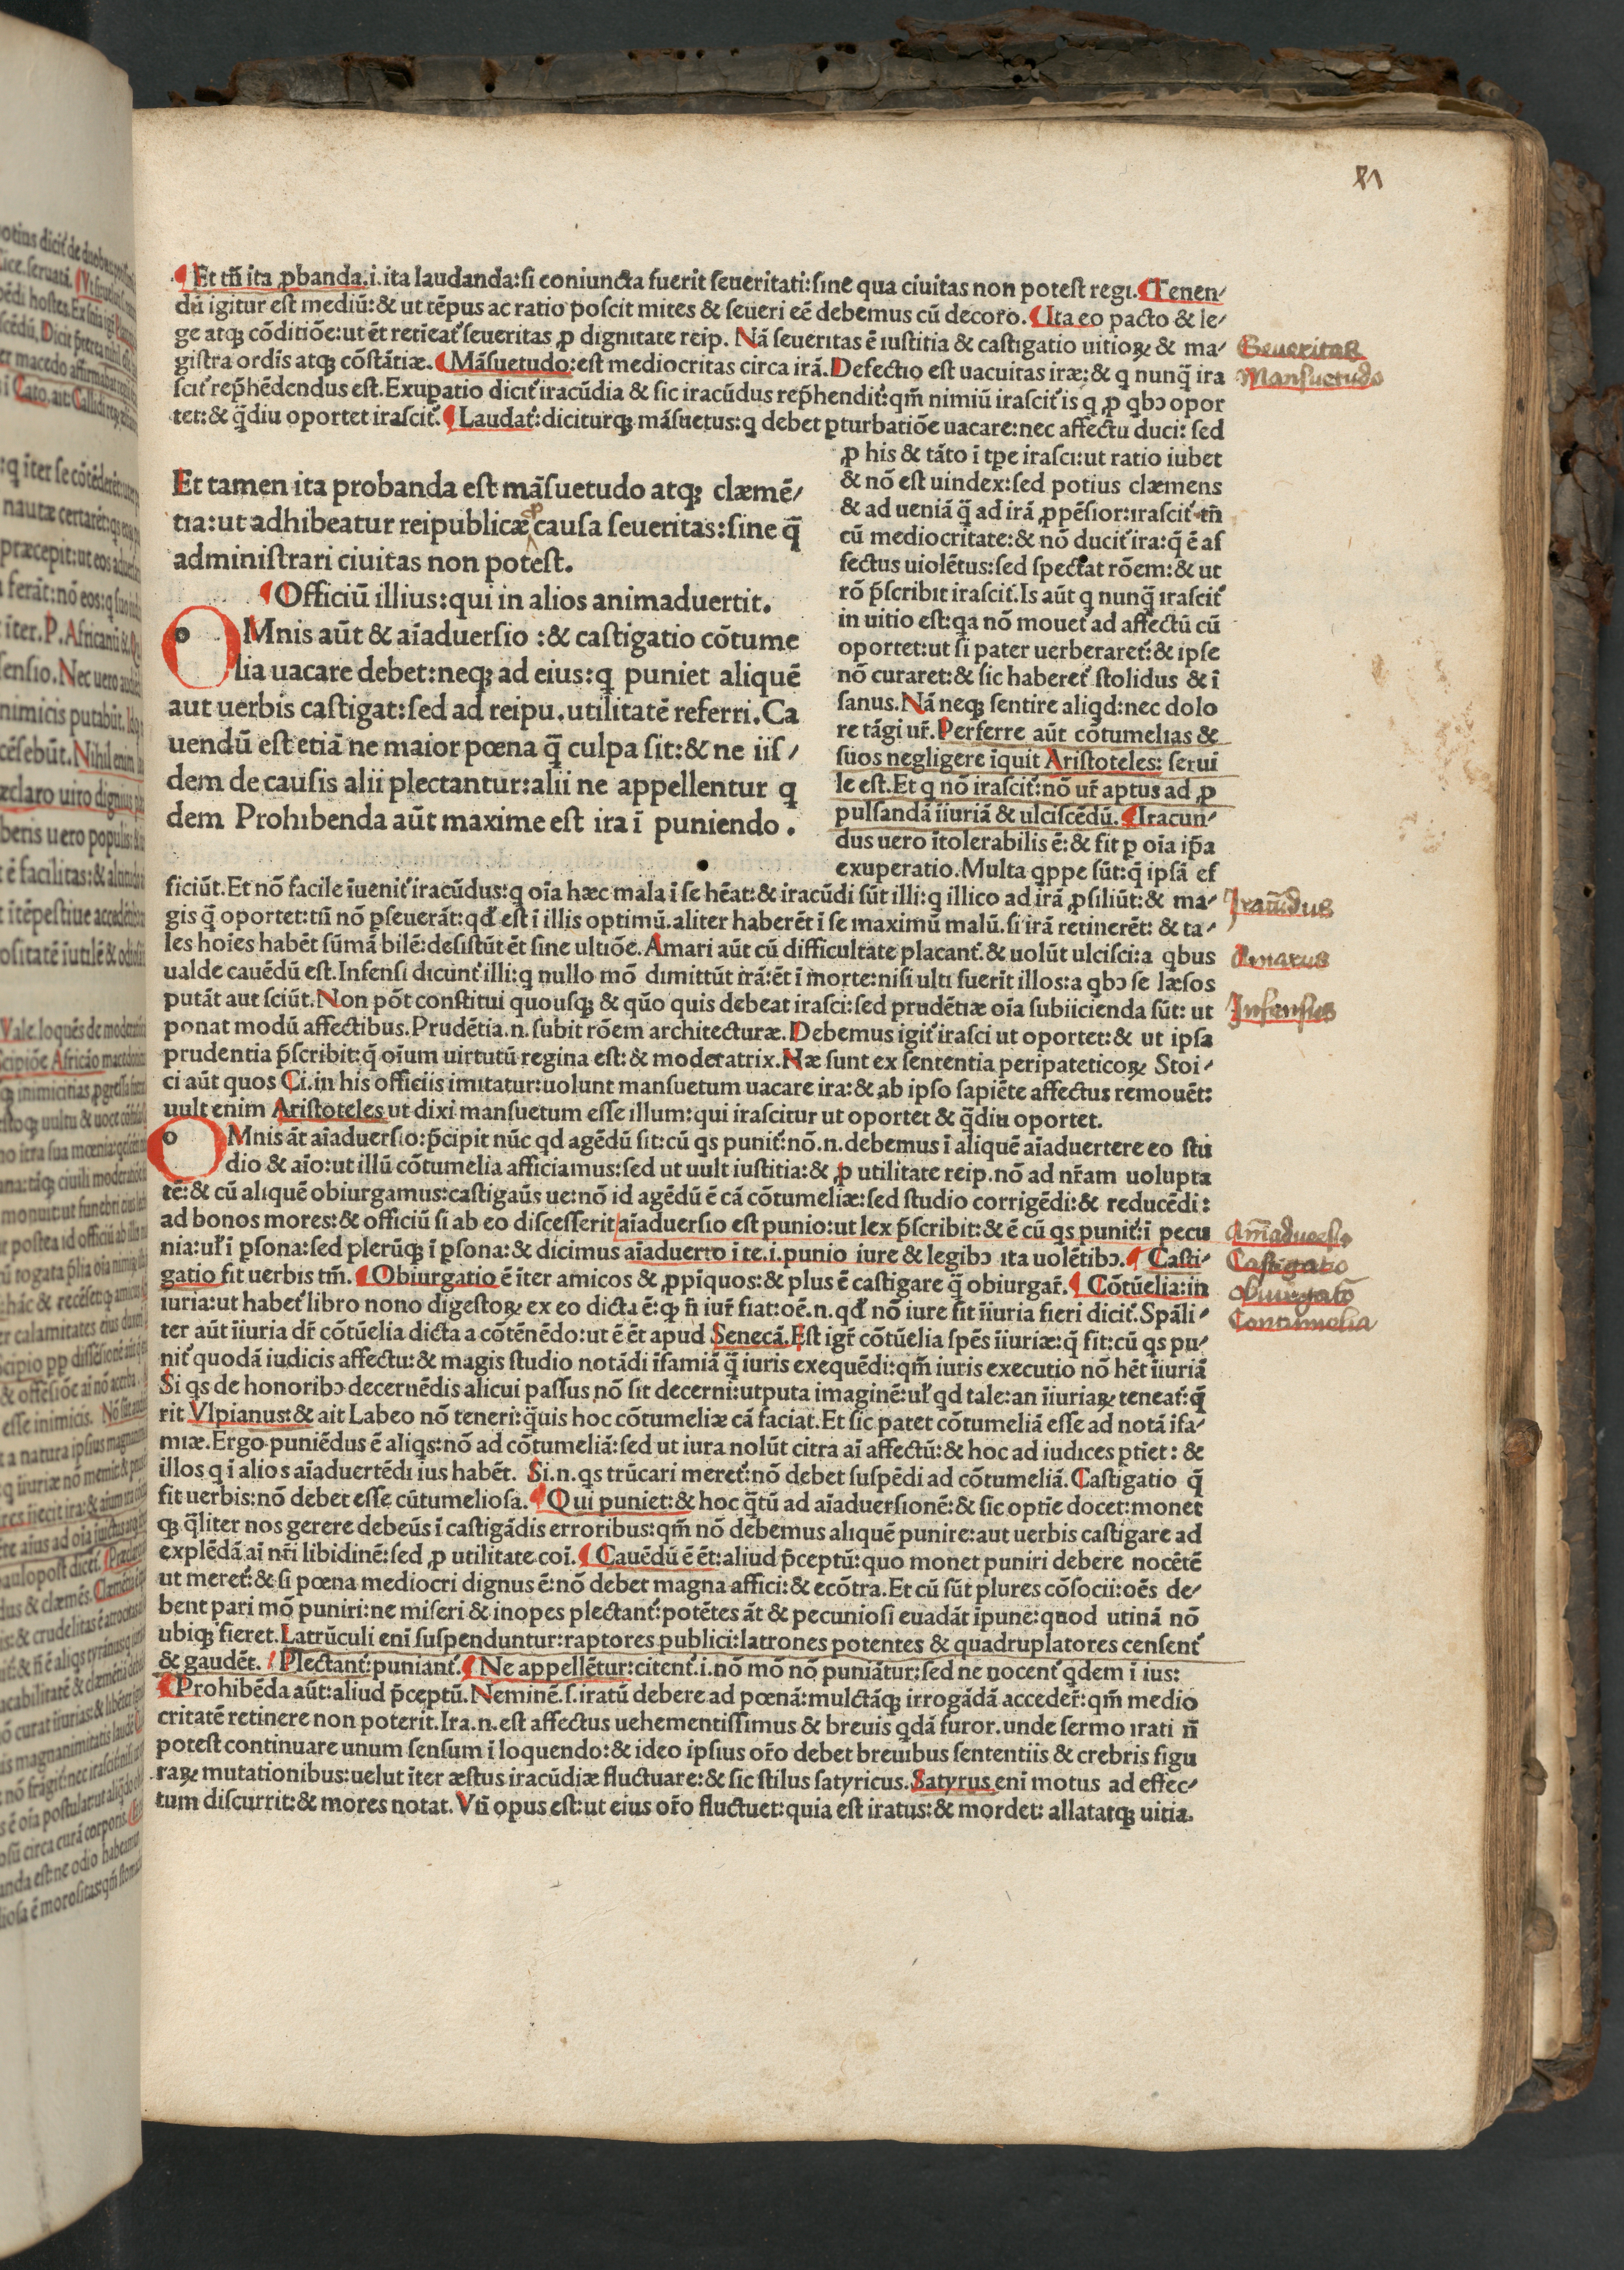 ¶ Et tñ ita ꝓbanda.i.ita laudanda:si coniuncta fuerit seueritati:sine qua ciuitas non potest regi.¶Tenen/
dũ igitur est mediũ:& ut tẽpus ac ratio poscit mites & seueri eẽ debemus cũ decoro.¶Ita eo pacto & le/
ge atqꝫ cõditiõe:ut ẽt retieat᷑ seueritas ꝓ dignitate reip. Nã seueritas ẽ iustitia & castigatio uitioꝝ & ma/
gistra ordis atqꝫ cõstãtiæ.¶Mãsuetudo:est mediocritas circa irã.Defectio est uacuitas iræ:& q nunq̃ ira
scit᷑ rep̃hẽdendus est.Exupatio dicit᷑ iracũdia & sic iracũdus rep̃hendit᷑:qm̃ nimiũ irascit᷑ is q ꝓ qbↄ opor
tet:& q̃diu oportet irascit᷑.¶Laudat᷑:diciturqꝫ mãsuetus:q debet ꝑturbatiõe uacare:nec affectu duci: sed
ꝓ his & tãto ĩ tꝑe irasci:ut ratio iubet
& nõ est uindex:sed potius clæmens
& ad ueniã q̃ ad irã ꝓpẽsior:irascit᷑ tñ
cũ mediocritate:& nõ ducit᷑ ira:q̃ ẽ af
fectus uiolẽtus:sed spectat rõem:& ut
rõ p̃scribit irascit᷑.Is aũt q nunq̃ irascit᷑
in uitio est:qa nõ mouet᷑ ad affectũ cũ
oportet:ut si pater uerberaret᷑:& ipse
nõ curaret:& sic haberet᷑ stolidus & ĩ
sanus.Nã neqꝫ sentire aliqd:nec dolo
re tãgi ur̃.Perferre aũt cõtumelias &
suos negligere ĩquit Aristoteles: serui
le est.Et q nõ irascit᷑:nõ ur̃ aptus ad ꝓ
pulsandã ĩiuriã & ulciscẽdũ.¶Iracun/
dus uero ĩtolerabilis ẽ:& fit ꝑ oĩa ip̃a
exuperatio.Multa qppe sũt:q̃ ipsã ef
Et tamen ita probanda est mãsuetudo atqꝫ clæmẽ/
tia:ut adhibeatur reipublicæ causa seueritas:sine q̃
administrari ciuitas non potest.
¶Officiũ illius:qui in alios animaduertit.
OMnis aũt & aĩaduersio :& castigatio cõtume
lia uacare debet:neqꝫ ad eius:q puniet aliquẽ
aut uerbis castigat:sed ad reipu.utilitatẽ referri.Ca
uendũ est etiã ne maior pœna q̃ culpa sit:& ne iis /
dem de causis alii plectantur:alii ne appellentur q
dem Prohibenda aũt maxime est ira ĩ puniendo .
ficiũt.Et nõ facile ĩuenit᷑ iracũdus:q oĩa hæc mala ĩ se hẽat:& iracũdi sũt illi:q illico ad irã ꝓsiliũt:& ma/
gis q̃ oportet:tñ nõ ꝑseuerãt:qđ est ĩ illis optimũ.aliter haberẽt ĩ se maximũ malũ.si irã retinerẽt: & ta/
les hoĩes habẽt sũmã bilẽ:desistũt ẽt sine ultiõe.Amari aũt cũ difficultate placant᷑.& uolũt ulcisci:a qbus
ualde cauẽdũ est.Infensi dicunt᷑ illi:q nullo mõ dimittũt irã:ẽt ĩ morte:nisi ulti fuerĩt illos:a qbↄ se læsos
putãt aut sciũt.Non põt constitui quousqꝫ & quõ quis debeat irasci:sed prudẽtiæ oĩa subiicienda sũt: ut
ponat modũ affectibus.Prudẽtia.n.subit rõem architecturæ.Debemus igit᷑ irasci ut oportet:& ut ipsa
prudentia p̃scribit:q̃ oĩum uirtutũ regina est:& moderatrix.Næ sunt ex sententia peripateticoꝝ Stoi/
ci aũt quos Ci.in his officiis imitatur:uolunt mansuetum uacare ira:& ab ipso sapiẽte affectus remouẽt:
uult enim Aristoteles ut dixi mansuetum esse illum:qui irascitur ut oportet & q̃diu oportet.
OMnis ãt aĩaduersio:p̃cipit nũc qd agẽdũ sit:cũ qs punit᷑:nõ.n.debemus ĩ aliquẽ aĩaduertere eo stu
dio & aĩo:ut illũ cõtumelia afficiamus:sed ut uult iustitia:& ꝓ utilitate reip.nõ ad nr̃am uolupta
tẽ:& cũ aliquẽ obiurgamus:castigaũs ue:nõ id agẽdũ ẽ cã cõtumeliæ:sed studio corrigẽdi:& reducẽdi:
ad bonos mores:& officiũ si ab eo discesserit aĩaduersio est punio:ut lex p̃scribit:& ẽ cũ qs punit᷑:ĩ pecu
nia:uł ĩ ꝑsona:sed plerũqꝫ ĩ ꝑsona:& dicimus aĩaduerto ĩ te.i.punio iure & legibↄ ita uolẽtibↄ.¶ Casti/
gatio fit uerbis tm̃.¶Obiurgatio ẽ ĩter amicos & ꝓpĩquos:& plus ẽ castigare q̃ obiurgar̃.¶ Cõtũelia:in
iuria:ut habet᷑ libro nono digestoꝝ ex eo dicta ẽ:qꝫ ñ iur̃ fiat:oẽ.n.qđ nõ iure fit ĩiuria fieri dicit᷑.Spãli/
ter aũt ĩiuria dr̃ cõtũelia dicta a cõtẽnẽdo:ut ẽ ẽt apud Senecã.Est igr̃ cõtũelia spẽs ĩiuriæ:q̃ fit:cũ qs pu/
nit᷑ quodã iudicis affectu:& magis studio notãdi ĩfamiã q̃ iuris exequẽdi:qm̃ iuris executio nõ hẽt ĩiuriã
Si qs de honoribↄ decernẽdis alicui passus nõ sit decerni:utputa imaginẽ:uł qd tale:an ĩiuriaꝝ teneat᷑:q̃
rit Vlpianus:& ait Labeo nõ teneri:q̃uis hoc cõtumeliæ cã faciat.Et sic patet cõtumeliã esse ad notã ĩfa/
miæ.Ergo puniẽdus ẽ aliqs:nõ ad cõtumeliã:sed ut iura nolũt citra aĩ affectũ:& hoc ad iudices ptiet: &
illos q ĩ alios aĩaduertẽdi ius habẽt. Si.n.qs trũcari meret᷑:nõ debet suspẽdi ad cõtumeliã.Castigatio q̃
fit uerbis:nõ debet esse cũtumeliosa.¶Qui puniet:& hoc q̃tũ ad aĩaduersionẽ:& sic optie docet:monet
qꝫ q̃liter nos gerere debeũs ĩ castigãdis erroribus:qm̃ nõ debemus aliquẽ punire:aut uerbis castigare ad
explẽdã aĩ nr̃i libidinẽ:sed ꝓ utilitate coĩ.¶Cauẽdũ ẽ ẽt:aliud p̃ceptũ:quo monet puniri debere nocẽtẽ
ut meret᷑:& si pœna mediocri dignus ẽ:nõ debet magna affici:& ecõtra.Et cũ sũt plures cõsocii:oẽs de/
bent pari mõ puniri:ne miseri & inopes plectant᷑:potẽtes ãt & pecuniosi euadãt ĩpune:quod utinã nõ
ubiqꝫ fieret.Latrũculi enĩ suspenduntur:raptores publici:latrones potentes & quadruplatores censent᷑
& gaudẽt. ¶Plectant᷑:puniant᷑.¶Ne appellẽtur:citent᷑.i.nõ mõ nõ puniãtur:sed ne uocent᷑ qdem ĩ ius:
¶Prohibẽda aũt:aliud p̃ceptũ.Neminẽ.s.iratũ debere ad pœnã:mulctãqꝫ irrogãdã acceder̃:qm̃ medio
critatẽ retinere non poterit.Ira.n.est affectus uehementissimus & breuis qdã furor.unde sermo irati ñ
potest continuare unum sensum ĩ loquendo:& ideo ipsius or̃o debet breuibus sententiis & crebris figu
raꝝ mutationibus:uelut ĩter æstus iracũdiæ fluctuare:& sic stilus satyricus.Satyrus enĩ motus ad effec/
tum discurrit:& mores notat.Vñ opus est:ut eius or̃o fluctuet:quia est iratus:& mordet: allatatqꝫ uitia.
Seueritas
Mansuetudo
Iracũdus
Amarus
Infensus
Aĩaduersio
Castigatio
Obiurgatio
Contumelia